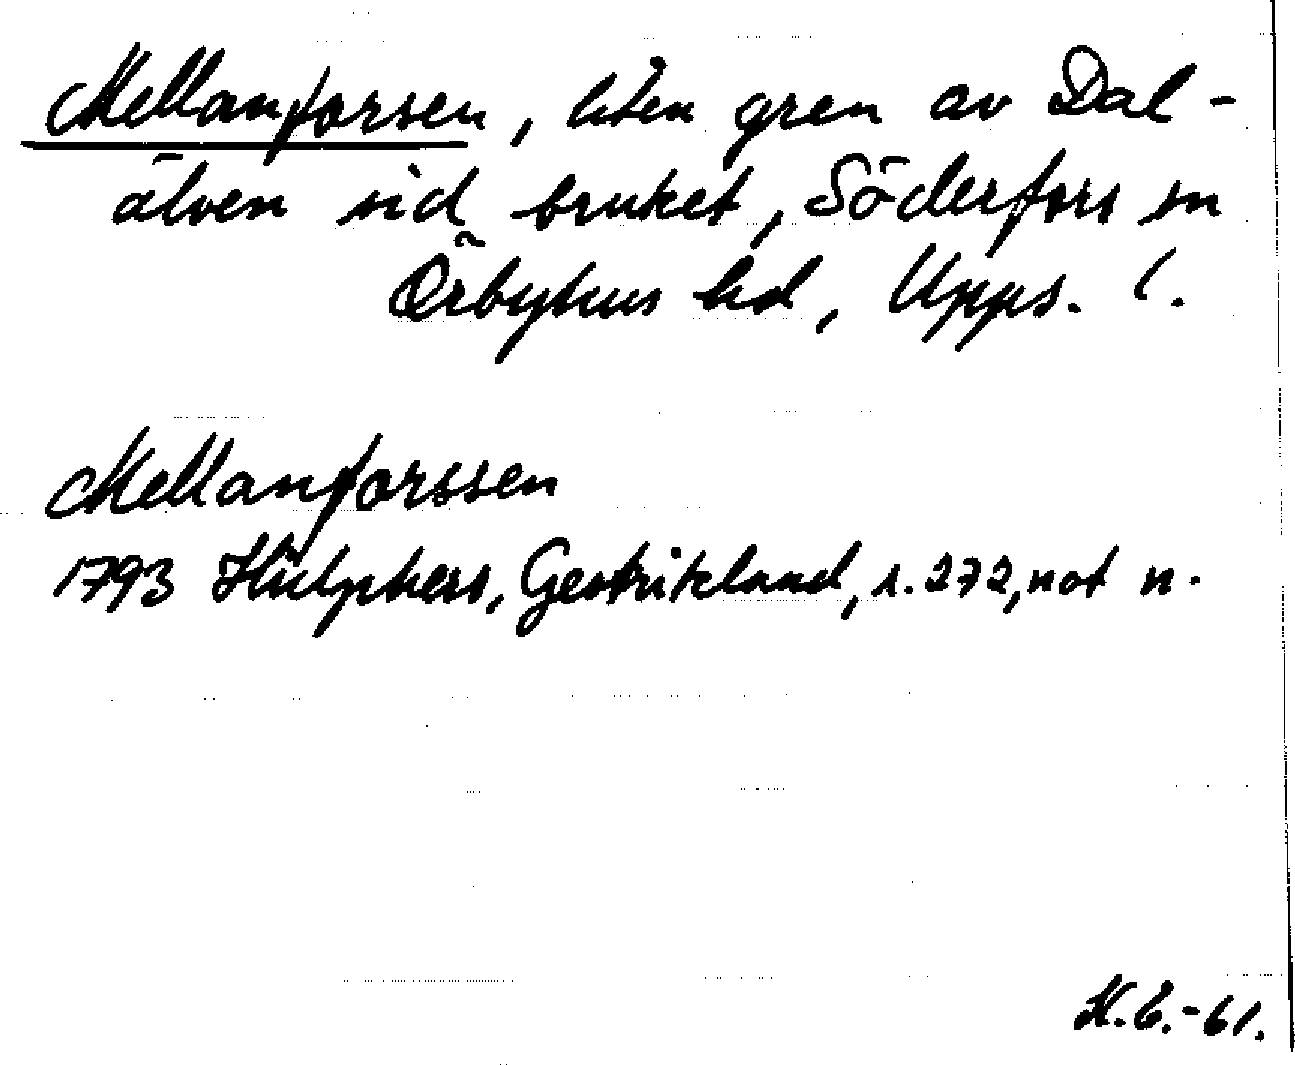 Mellanforsen, liten gren av Dal-
älven vid bruket, Söderfors sn
Örbyhus hd, Upps. l.
Mellanforssen
1793 Hülphers, Gestrikland, s. 272, not n.
K.E.-61.